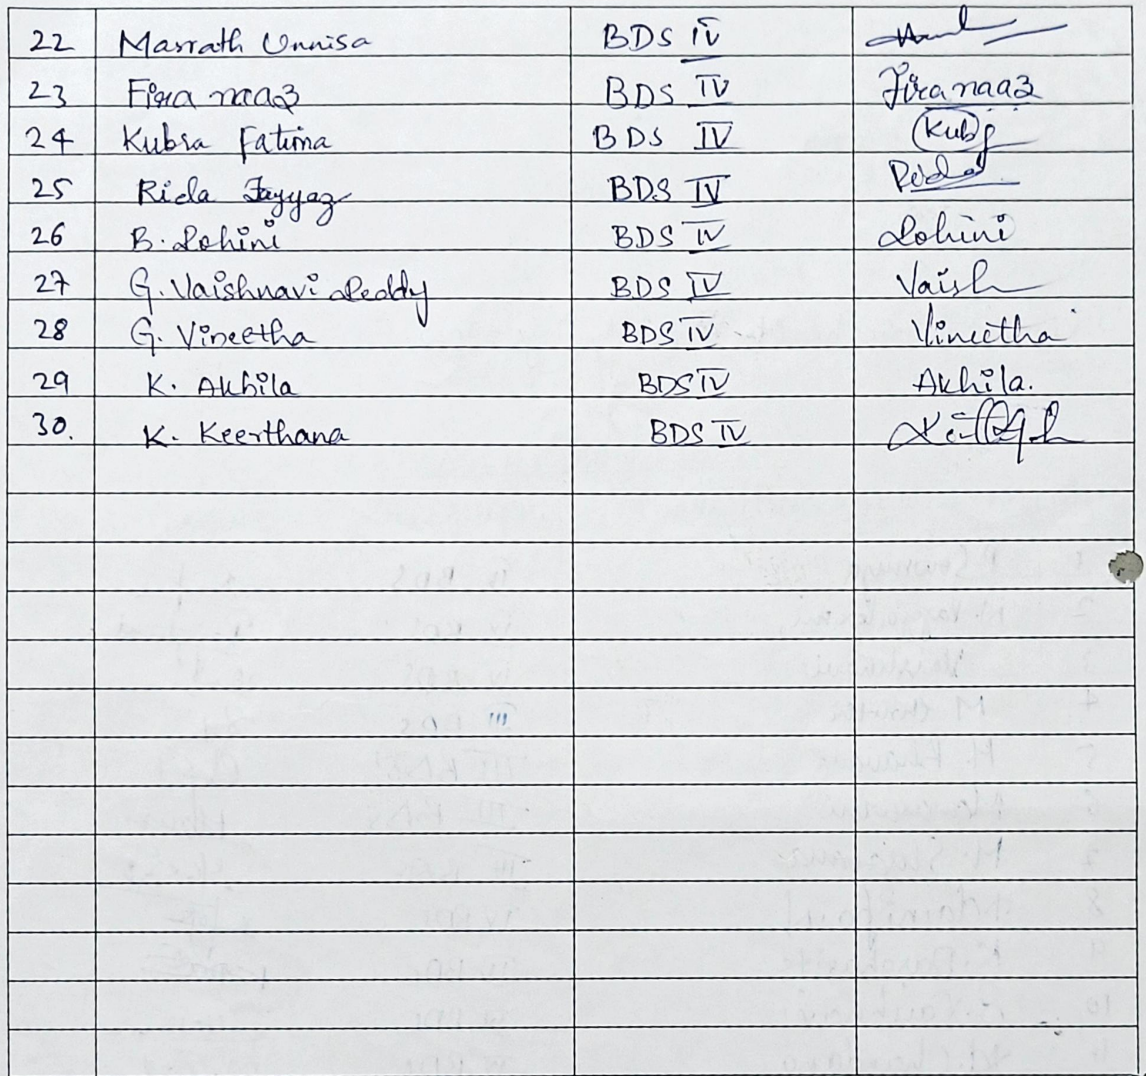 22 Masrath Unnisa BDS IV
23 Fira naaz BDS IV Firanaaz
24 Kubra Fatima BDS IV Kub
25 Rida Fayyaz BDS IV Rida
26 B. Rohini BDS IV Rohini
27 G. Vaishnavi Reddy BDS IV Vaish
28 G. Vineetha BDS IV Vineetha
29 K. Akhila BDS IV Akhila.
30. K. Keerthana BDS IV